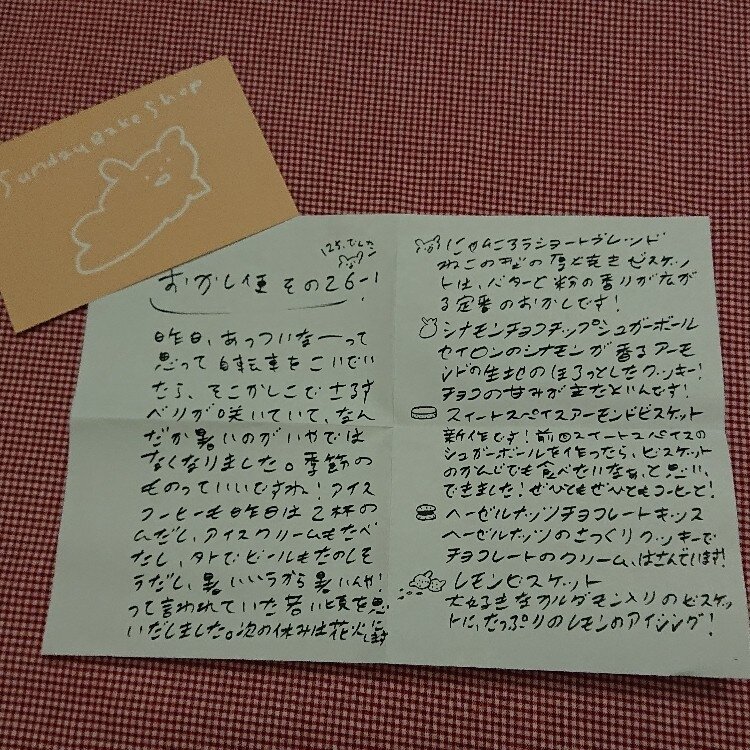 Sunday Bake Shop
おかし便 その26-!
昨日、あっついなーって
思って自転車をこいでい
たら、そこかしこでさるす
べりが咲いていて、なん
だか暑いのがいやでは
なくなりました。季節の
ものっていいですね!アイス
コーヒーも昨日は2杯の
んだし、アイスクリームもたべ
たし、外でビールもたのしそ
うだし、暑いいうから暑いんや!
って言われていた若い頃を思
いだしました。次の休みは花火に
にゃんころりショートブレッド
ねこの型の厚焼き ビスケッ
トは、バターと粉の香りが広が
る定番のおかしです!
シナモンチョコチップシュガーボール
セイロンのシナモンが香るアーモ
ンドの生地のほろっとしたクッキー!
チョコの甘みが またといんです!
スイートスパイスアーモンドビスケット
新作です!前回スイートスパイスの
シュガーボールを作ったら、ビスケット
のかんじでも食べたいなぁ、と思い、
できました!ぜひともぜひともコーヒーと!
ヘーゼルナッツチョコレートキッス
ヘーゼルナッツのさっくりクッキーで
チョコレートのクリーム、はさんでいます!
レモンビスケット
大好きなカルダモン入りのビスケッ
トに、たっぷりのレモンのアイシング!